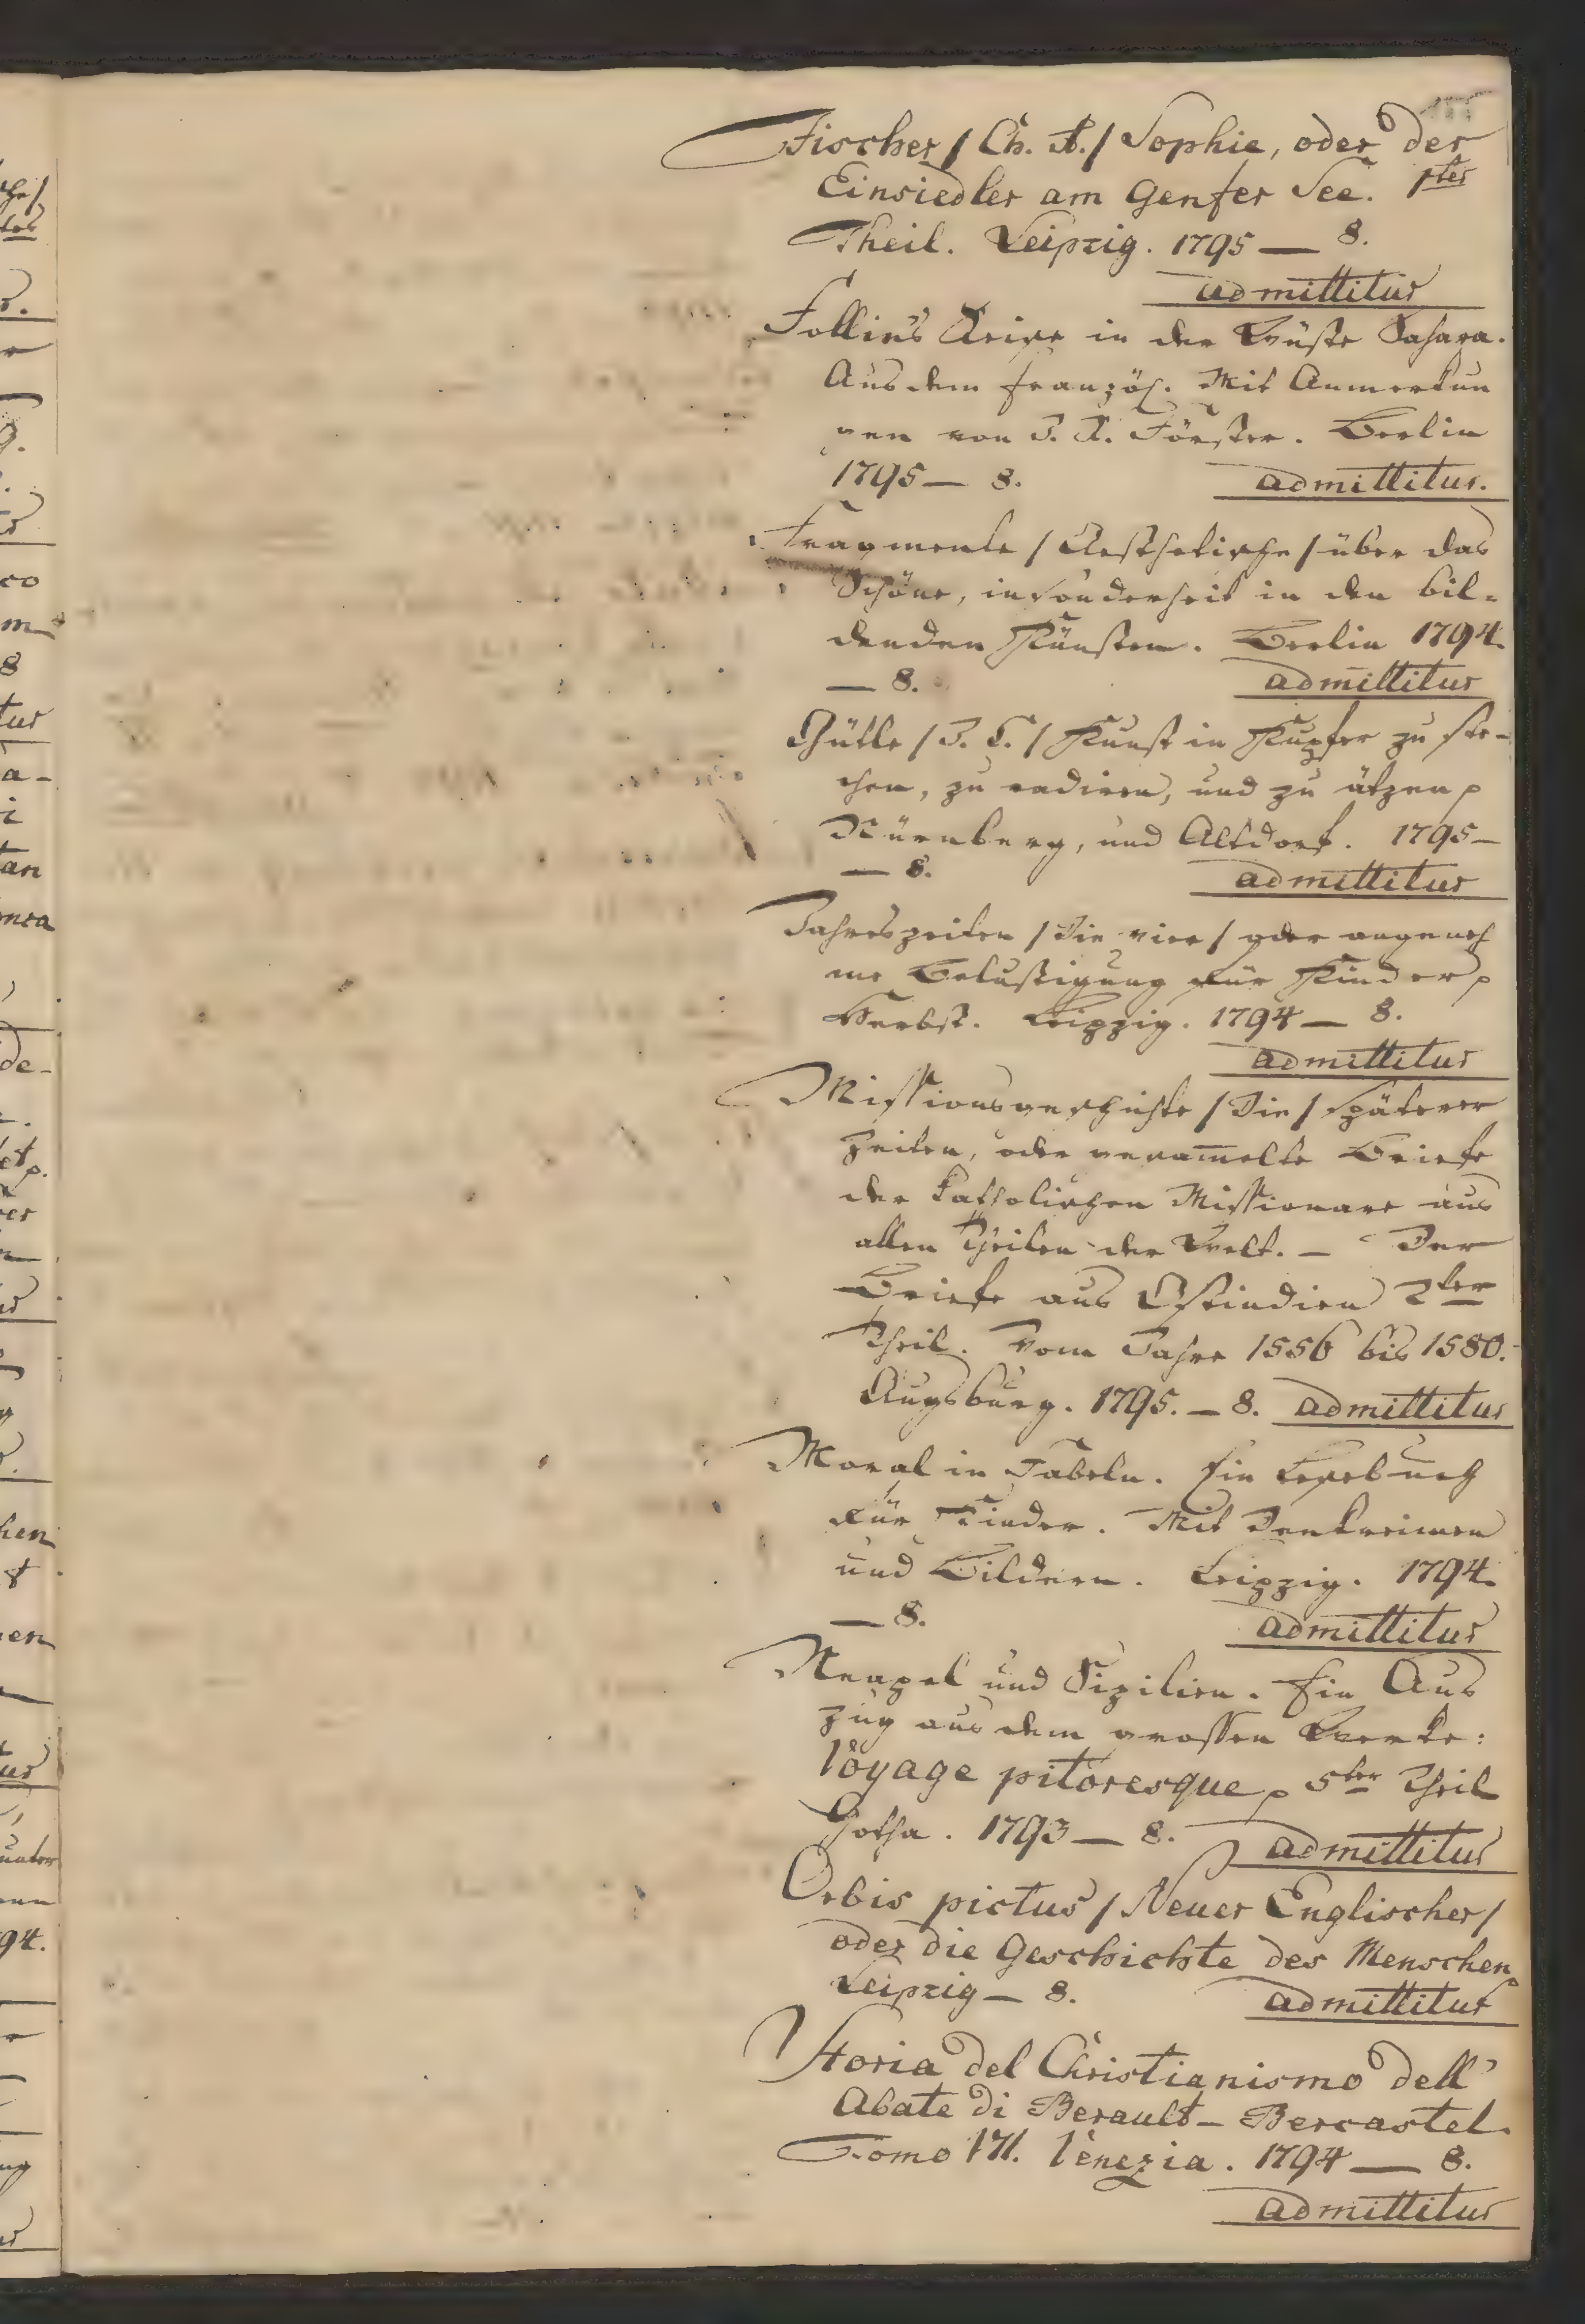 Fischer / Ch. A. / Sophie, oder der
Einsiedler am Genfer See. 1ter
Theil. Leipzig. 1795 — 8.
admittitur
Follie's Reise in der Wüste Sahara.
Aus dem Französ. Mit Anmerkun
gen von J. R. Förster. Berlin
1795 — 8. admittitur.
Fragmente / Aesthetische / über das
Schöne, insonderheit in den bil-
denden Künsten. Berlin 1794.
— 8. admittitur
Gütle / J. C. / Kunst in Kupfer zu ste-
chen, zu radiren, und zu ätzen p
Nürnberg, und Altdorf. 1795 —
— 8. admittitur
Jahreszeiten / Die vier / oder angeneh
me Belustigung für Kinder p
Herbst. Leipzig. 1794 — 8.
admittitur
Missionsgeschichte / Die / späterer
Zeiten, oder gesam̅elte Briefe
der katholischen Missionare aus
allen Theilen der Welt. — Der
Briefe aus Ostindien 2ter
Theil. Vom Jahre 1556 bis 1580.
Augsburg. 1795. — 8. admittitur
Moral in Fabeln. Ein Lesebuch
für Kinder. Mit Denkreimen
und Bildern. Leipzig. 1794.
— 8. admittitur
Neapel und Sizilien. Ein Aus
zug aus dem grossen Werke:
Voyage pitoresque p 5ter Theil
Gotha. 1793 — 8. admittitur
Orbis pictus / Neuer Englischer /
oder die Geschichte des Menschen p
Leipzig — 8. admittitur
Storia del Christianismo dell'
Abate di Berault — Bercastel.
Tomo VII. Venezia. 1794 — 8.
admittitur